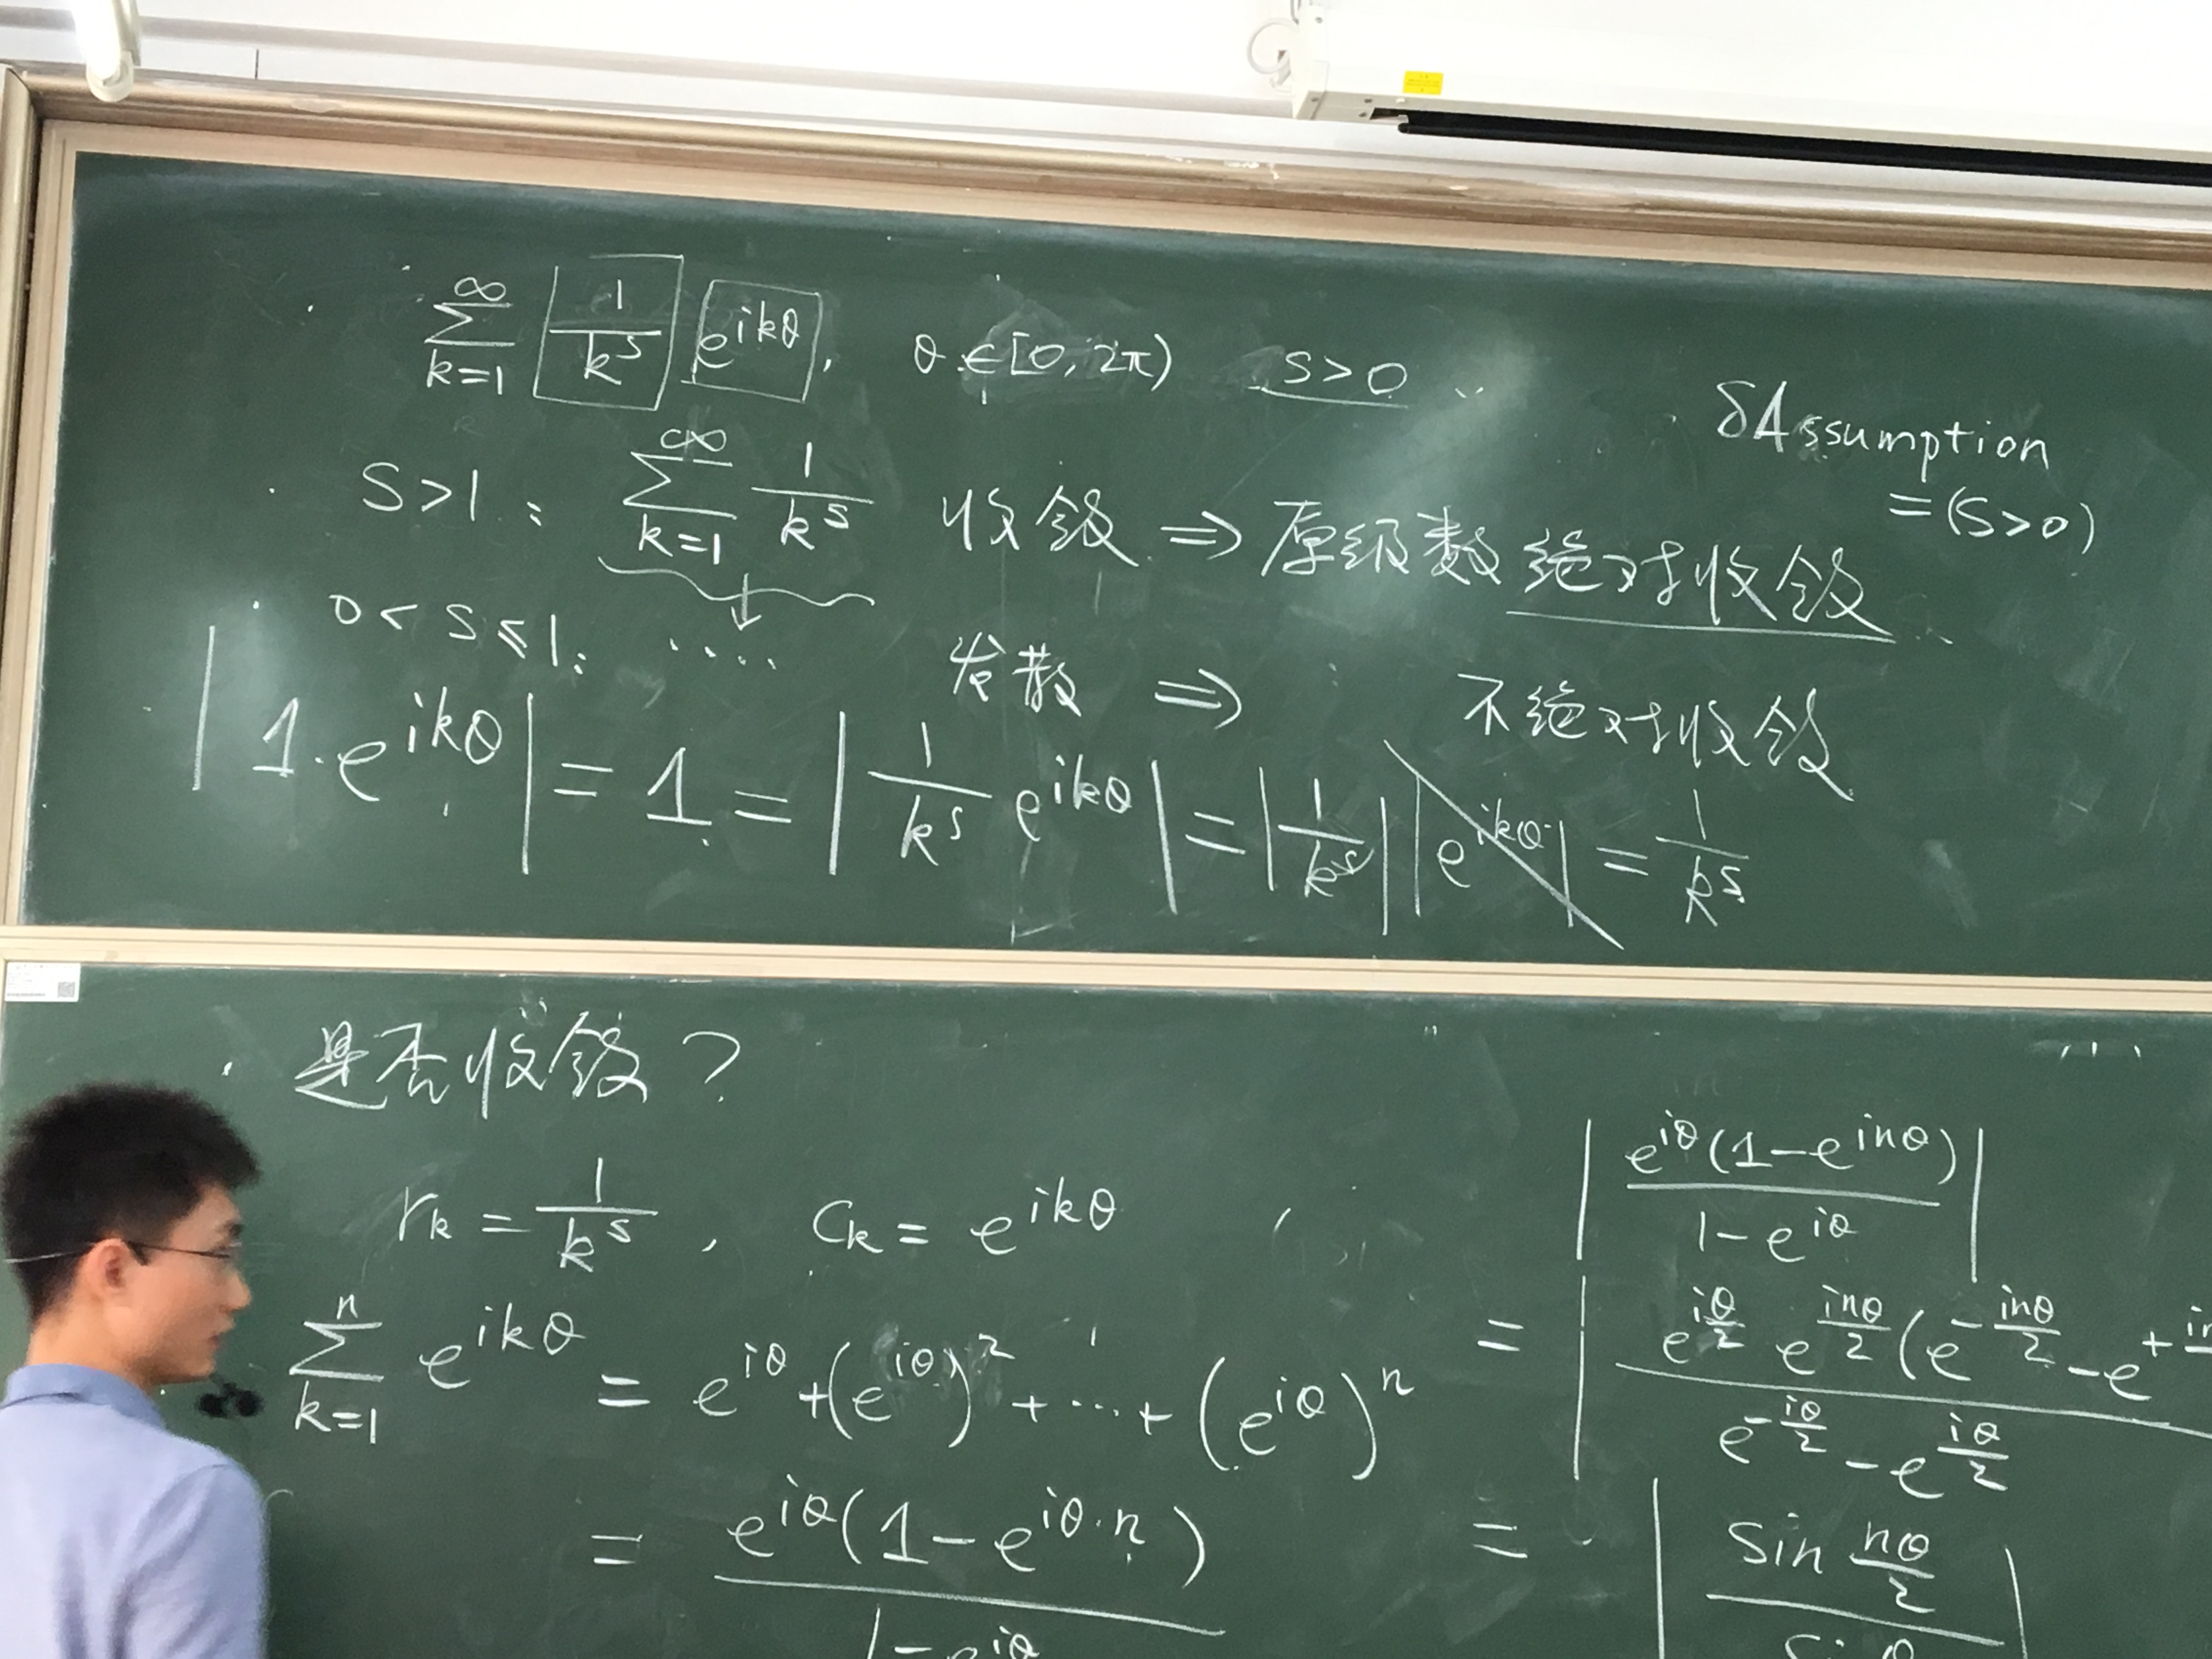 ∑_{k=1}^{∞} 1/k^s e^{ikθ}, θ∈[0, 2π) s>0
δAssumption
=(s>0)
s>1: ∑_{k=1}^{∞} 1/k^s 收敛 ⇒ 原级数绝对收敛
0<s≤1: .... 发散 ⇒ 不绝对收敛
|1·e^{ikθ}| = 1 = |1/k^s e^{ikθ}| = |1/k^s||e^{ikθ}| = 1/k^s
是否收敛?
r_k = 1/k^s, c_k = e^{ikθ}
∑_{k=1}^{n} e^{ikθ} = e^{iθ}+(e^{iθ})^2+...+(e^{iθ})^n
= e^{iθ}(1-e^{iθ·n}) / 1-e^{iθ}
|e^{iθ}(1-e^{inθ}) / 1-e^{iθ}|
= | e^{iθ/2} e^{inθ/2}(e^{-inθ/2}-e^{+in / e^{-iθ/2}-e^{iθ/2}
= | sin nθ/2 /